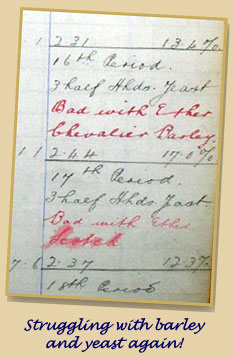 .1 2.31 13.4%.
16th Period.
3 half Hhds. Yeast
Bad with Ether
Chevalier Barley.
11 2.44 17.0%
17th Period.
3 half Hhds Yeast
Bad with Ether
Scotch
7.6 2.37 12.3%.
18th Period
Struggling with barley
and yeast again!